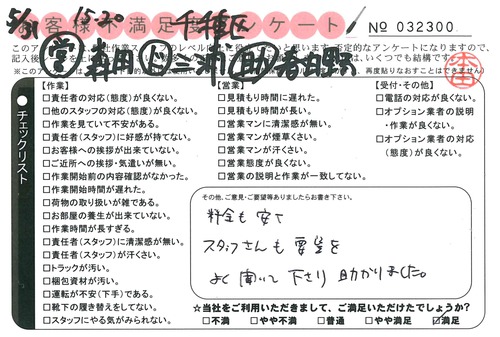 5/31 15:20 千種区
お客様不満足度アンケート
№ 032300
このア
業スタッフのレベル向上に役
と思います。否定的なアンケートになりますので、
記入後レ
いくつでも結構です。
※このア
再度貼りなおすことはできません)
営 井田 上三浦 助 春日野
チェックリスト
【作業】
□責任者の対応(態度)が良くない。
□他のスタッフの対応(態度)が良くない。
□作業を見ていて不安がある。
□責任者(スタッフ)に好感が持てない。
□お客様への挨拶が出来ていない。
□ご近所への挨拶・気遣いが無い。
□作業開始前の内容確認がなかった。
□作業開始時間が遅れた。
□荷物の取り扱いが雑である。
□お部屋の養生が出来ていない。
□作業時間が長すぎる。
□責任者(スタッフ)に清潔感が無い。
□責任者(スタッフ)が汗くさい。
□トラックが汚い。
□梱包資材が汚い。
□運転が不安(下手)である。
□靴下の履き替えをしてない。
□スタッフにやる気がみられない。
【営業】
□見積もり時間に遅れた。
□見積もり時間が長い。
□営業マンに清潔感が無い。
□営業マンが煙草くさい。
□営業マンが汗くさい。
□営業態度が良くない。
□営業の説明と作業が一致してない。
【受付・その他】
□電話の対応が良くない。
□オプション業者の説明
・作業が良くない。
□オプション業者の対応
(態度)が良くない。
その他、ご意見・ご要望等ありましたらお書き下さい。
料金も安て
スタッフさんも要望を
よく聞いて下さり助かりました。
☆当社をご利用いただきまして、ご満足いただけたでしょうか?
□不満 □やや不満 □普通 □やや満足 ☑満足